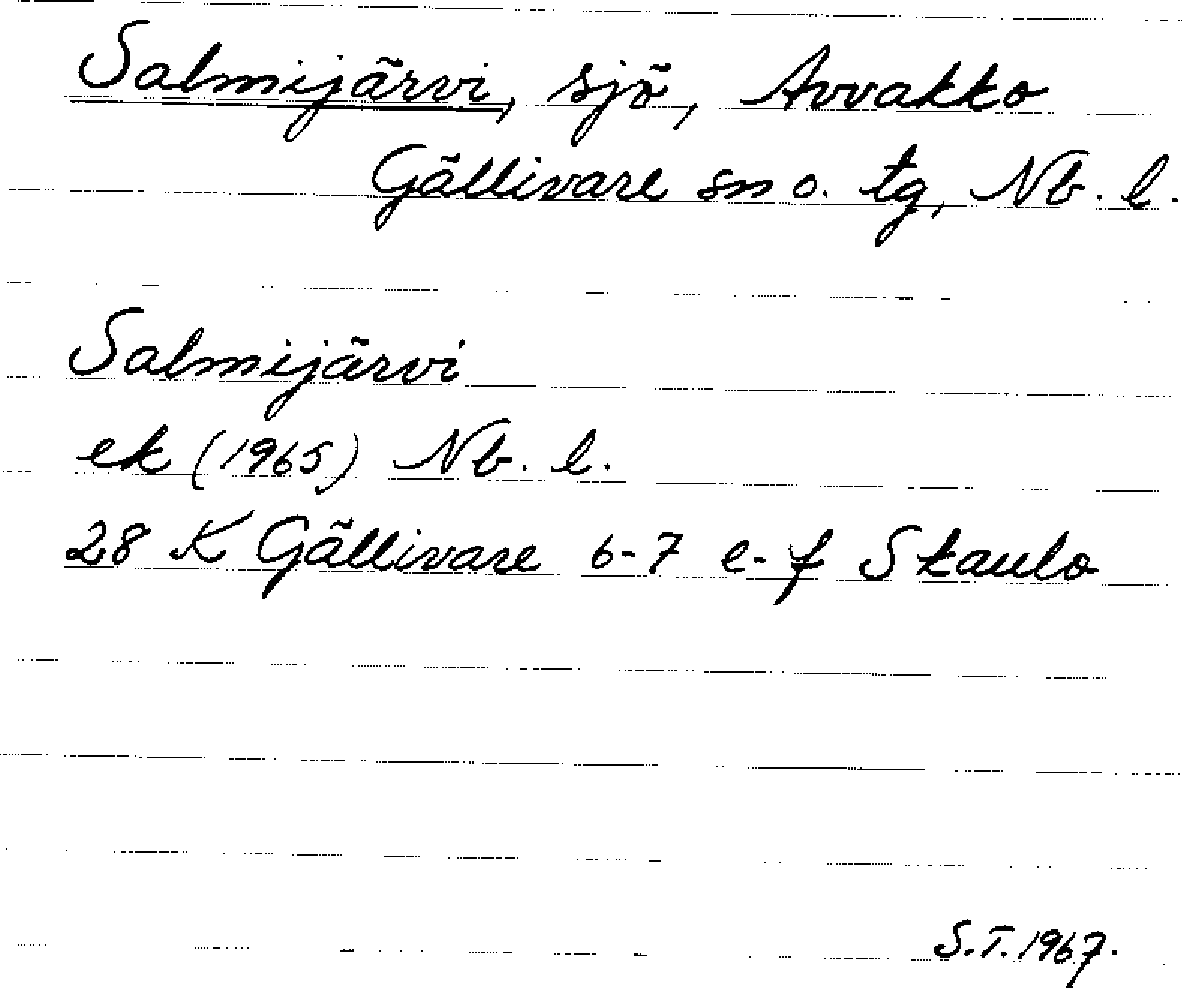 Salmijärvi, sjö, Avvakko
Gällivare sn o. tg, Nb. l.
Salmijärvi
ek (1965) Nb. l.
28 K Gällivare 6-7 e-f Skaulo
S.T. 1967.